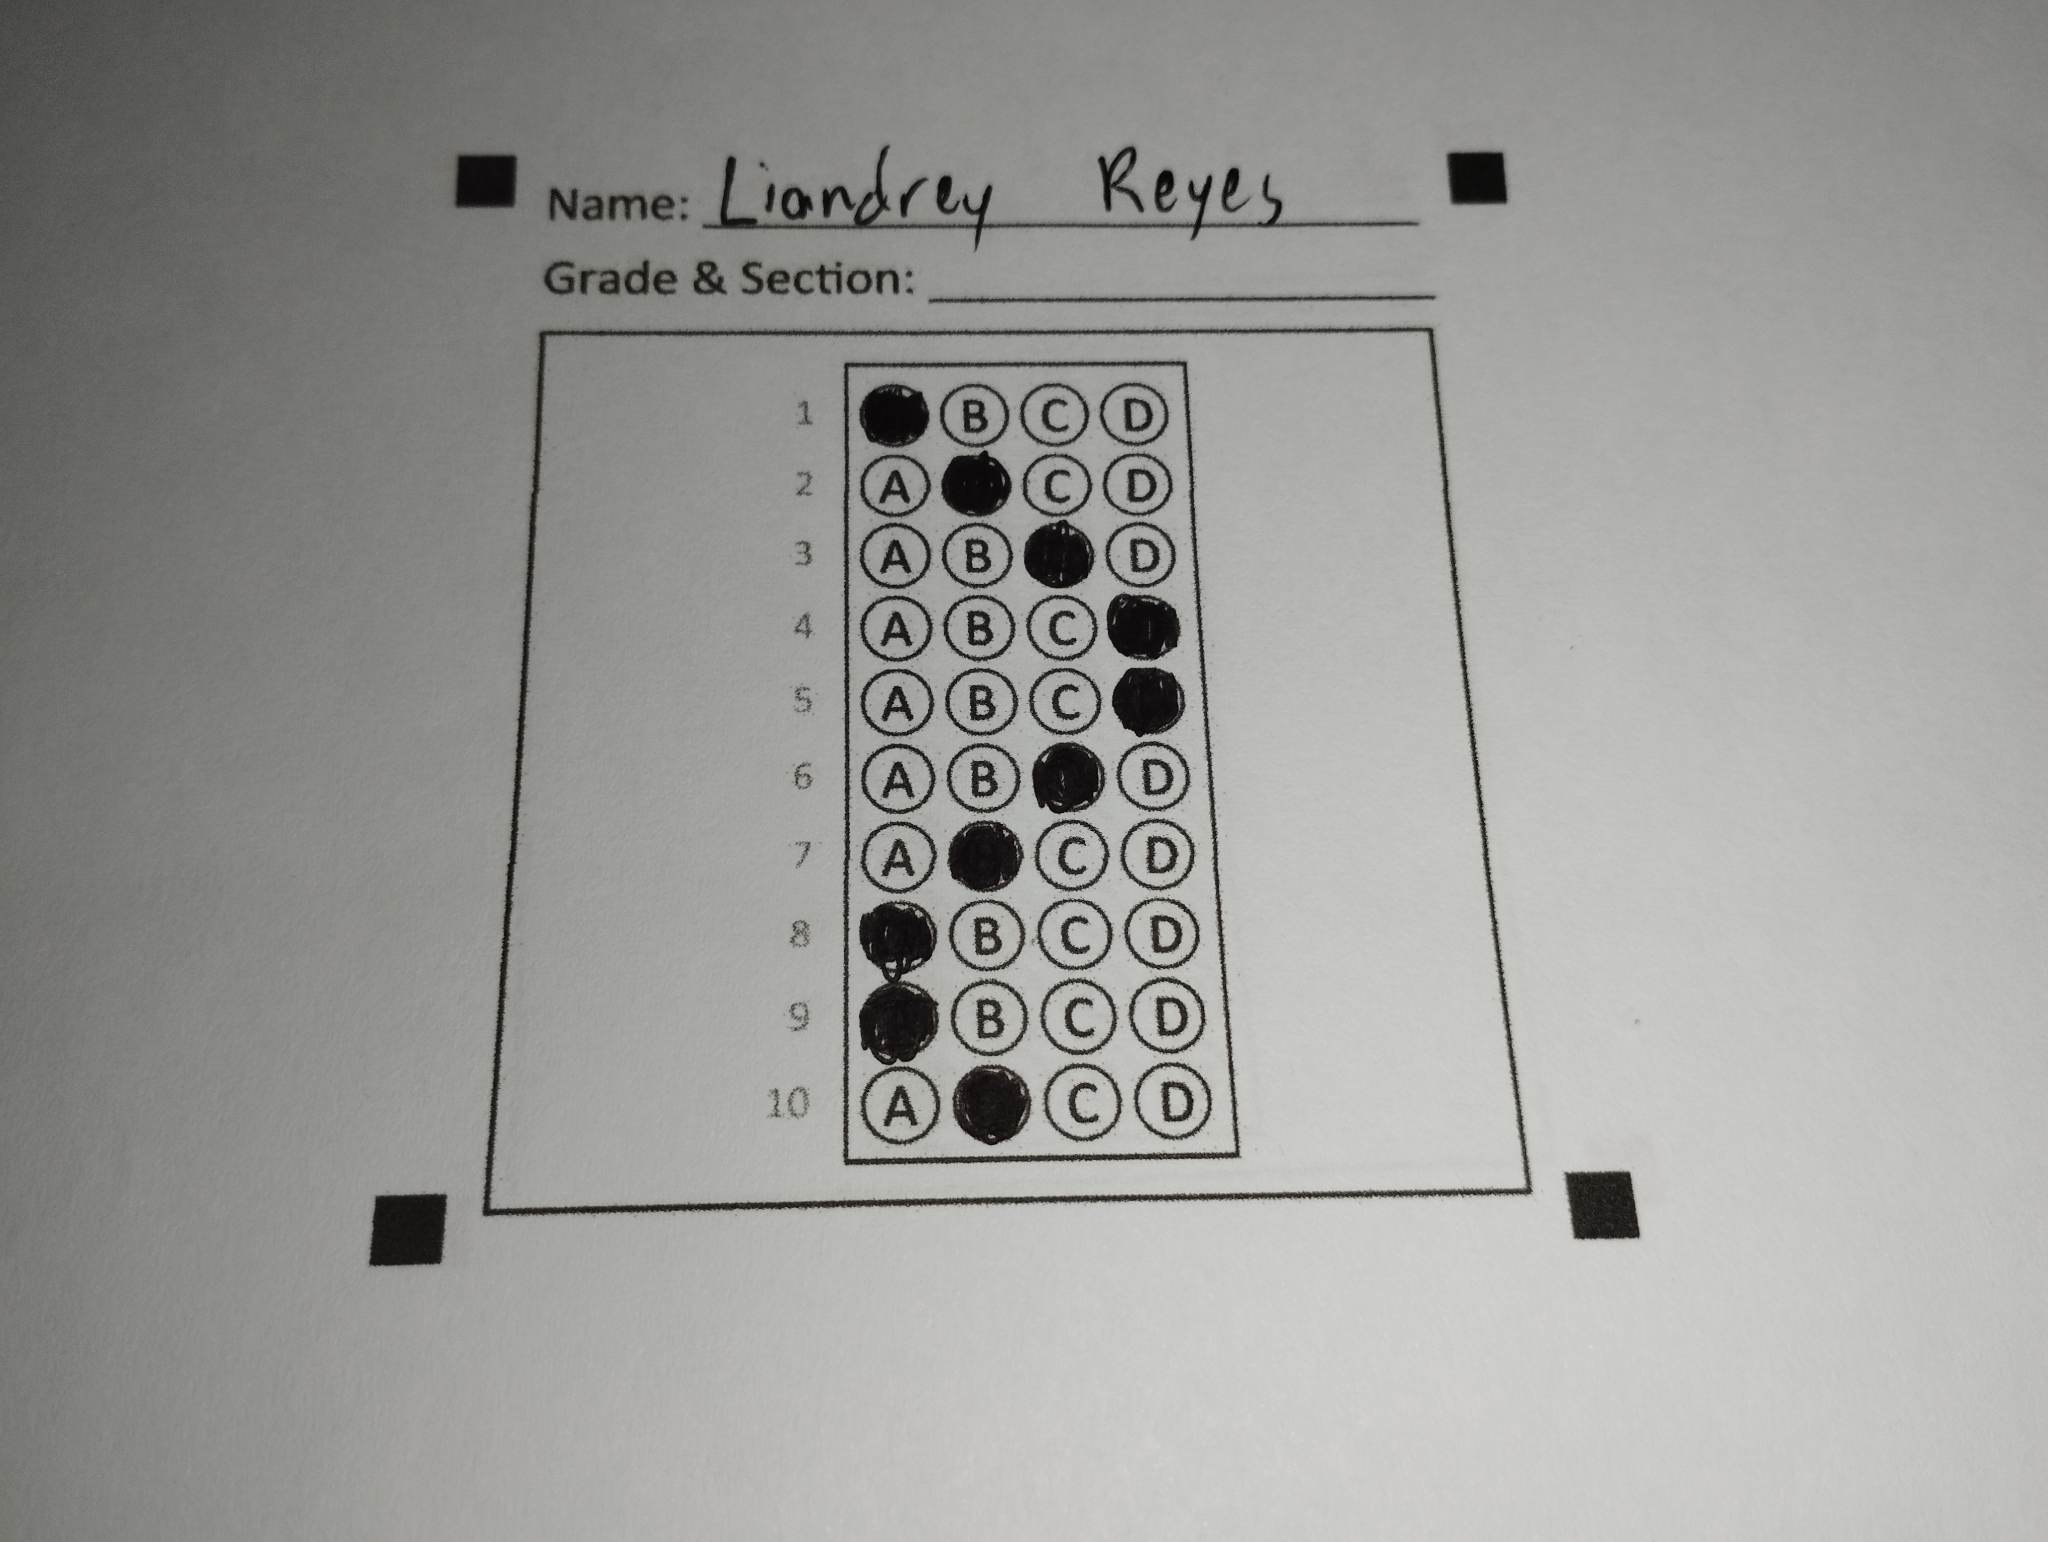 Name: Liandrey Reyes
Grade & Section:
1 B C D
2 A C D
3 A B D
4 A B C
5 A B C
6 A B D
7 A C D
8 B C D
9 B C D
10 A C D